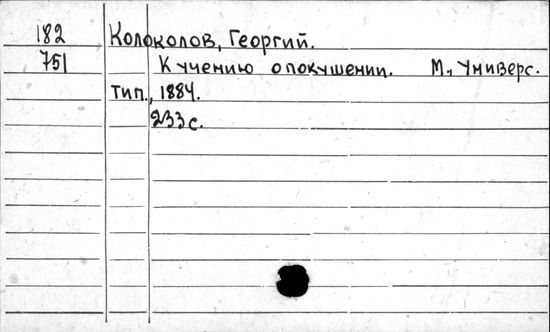 182 Колоколов, Георгий.
751 К учению о покушении. М., Универс.
тип., 1884.
233 с.